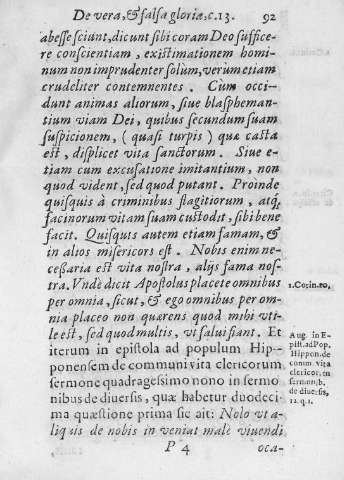 De vera, & falsa gloria, c.13. 92
abesse sciunt, dicunt sibi coram Deo suffice-
re conscientiam, existimationem homi-
num non imprudenter solùm, verùm etiam
crudeliter contemnentes. Cum occi-
dunt animas aliorum, siue blasphemant-
tium viam Dei, quibus secundum suam
suspicionem, (quasi turpis) quæ casta
est, displicet vita sanctorum. Siue e-
tiam cum excusatione imitantium, non
quod vident, sed quod putant. Proinde
quisquis à criminibus flagitiorum, atq;
facinorum vitam suam custodit, sibi bene
facit. Quisquis autem etiam famam, &
in alios misericors est. Nobis enim ne-
cessaria est vita nostra, alijs fama nos-
tra. Vnde dicit Apostolus placete omnibus
per omnia, sicut, & ego omnibus per om-
nia placeo non quærens quod mihi vti-
le est, sed quod multis, vt salui fiant. Et
iterum in epistola ad populum Hip-
ponensem de communi vita clericorum
sermone quadragessimo nono in sermo
nibus de diuersis, quæ habetur duodeci-
ma quæstione prima sic ait: Nolo vt a-
liquis de nobis in veniat male viuendi
P 4 oca-
1. Corin. 10.
Aug. in E-
pist. ad Pop.
Hippon. de
comm. vita
clericor. in
sermonib.
de diuersis,
12. q. 1.